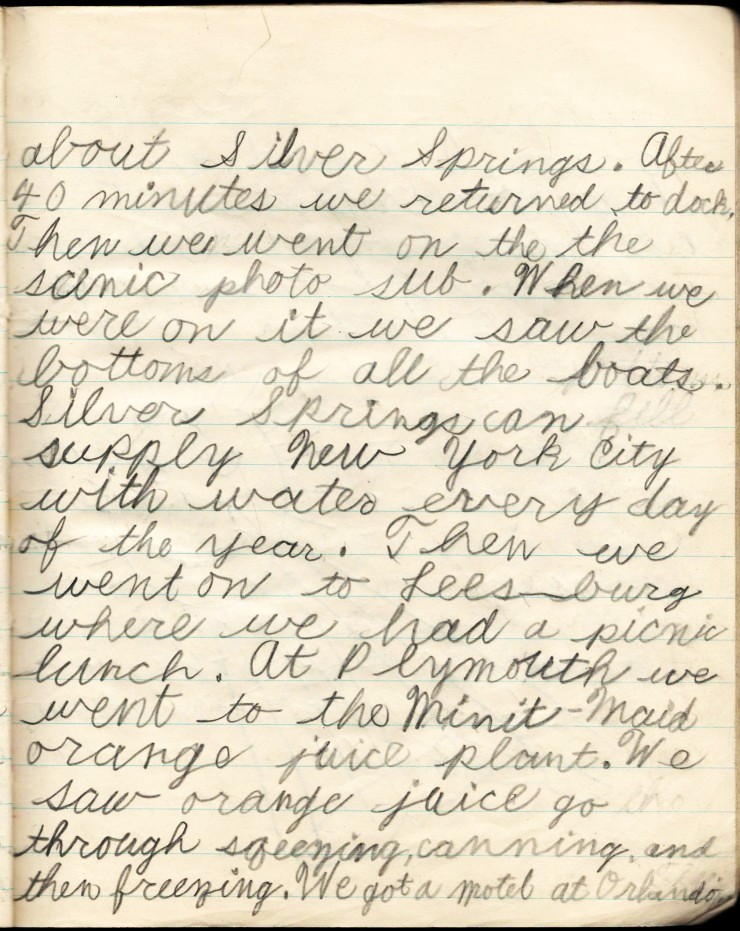 about Silver Springs. After
40 minutes we returned to dock.
Then we went on the the
scinic photo sub. When we
were on it we saw the
bottoms of all the boats.
Silver Springs can
supply New York City
with water every day
of the year. Then we
went on to Leesburg
where we had a picnic
lunch. At Plymouth we
went to the Minit-Maid
orange juice plant. We
saw orange juice go
through sqeezing, canning, and
then freezing. We got a motel at Orlando.